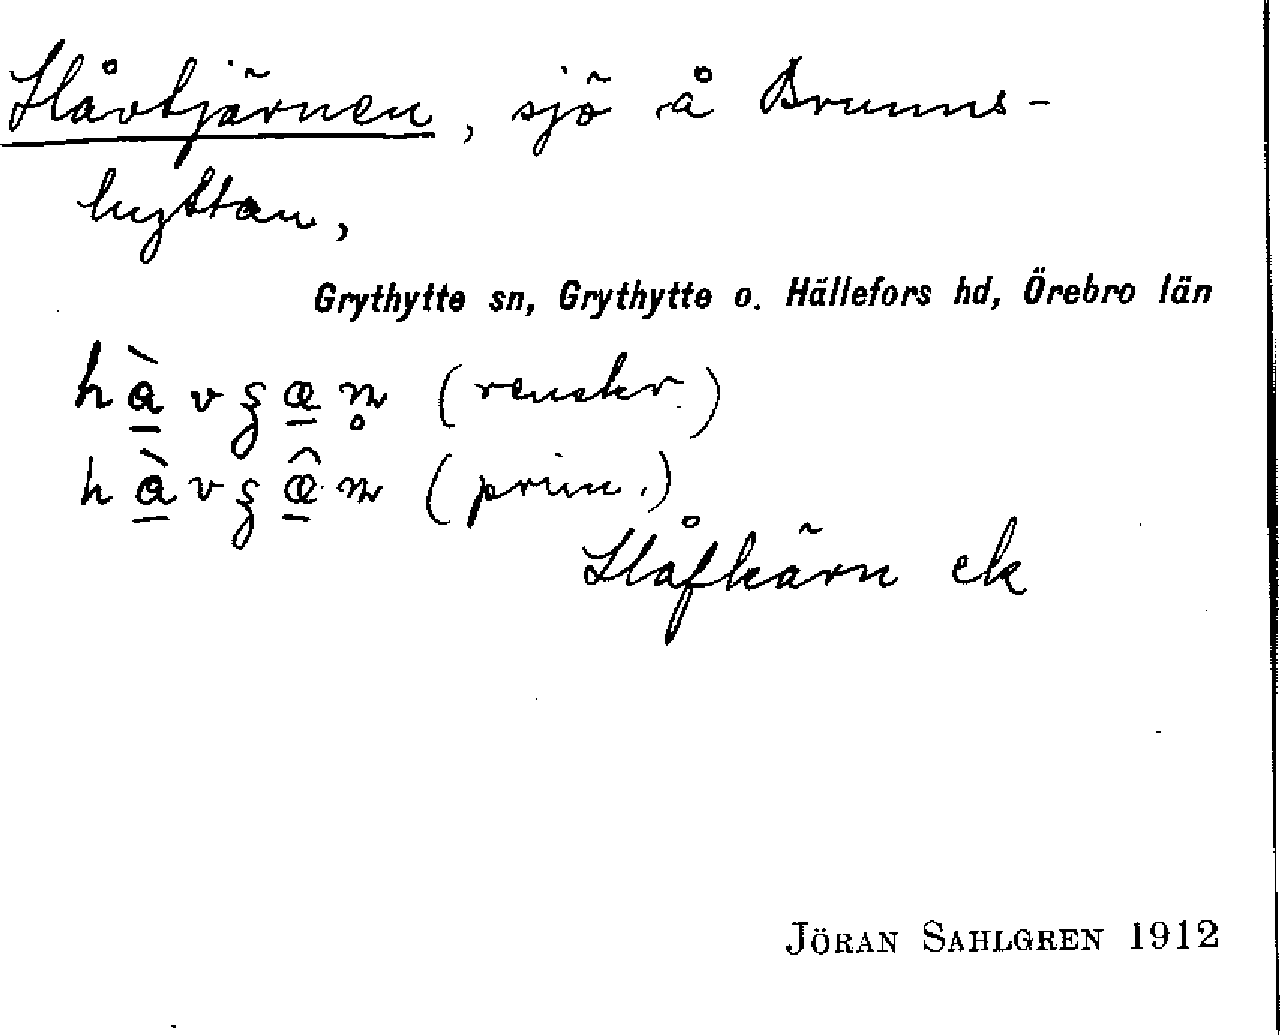 Håvtjärnen, sjö å Brunns-
hyttan,
Grythytte sn, Grythytte o. Hällefors hd, Örebro län
hàvʒæn̥ (renskr.)
hàvʒæ̂n (prim.)
Håfkärn ek
JÖRAN SAHLGREN 1912